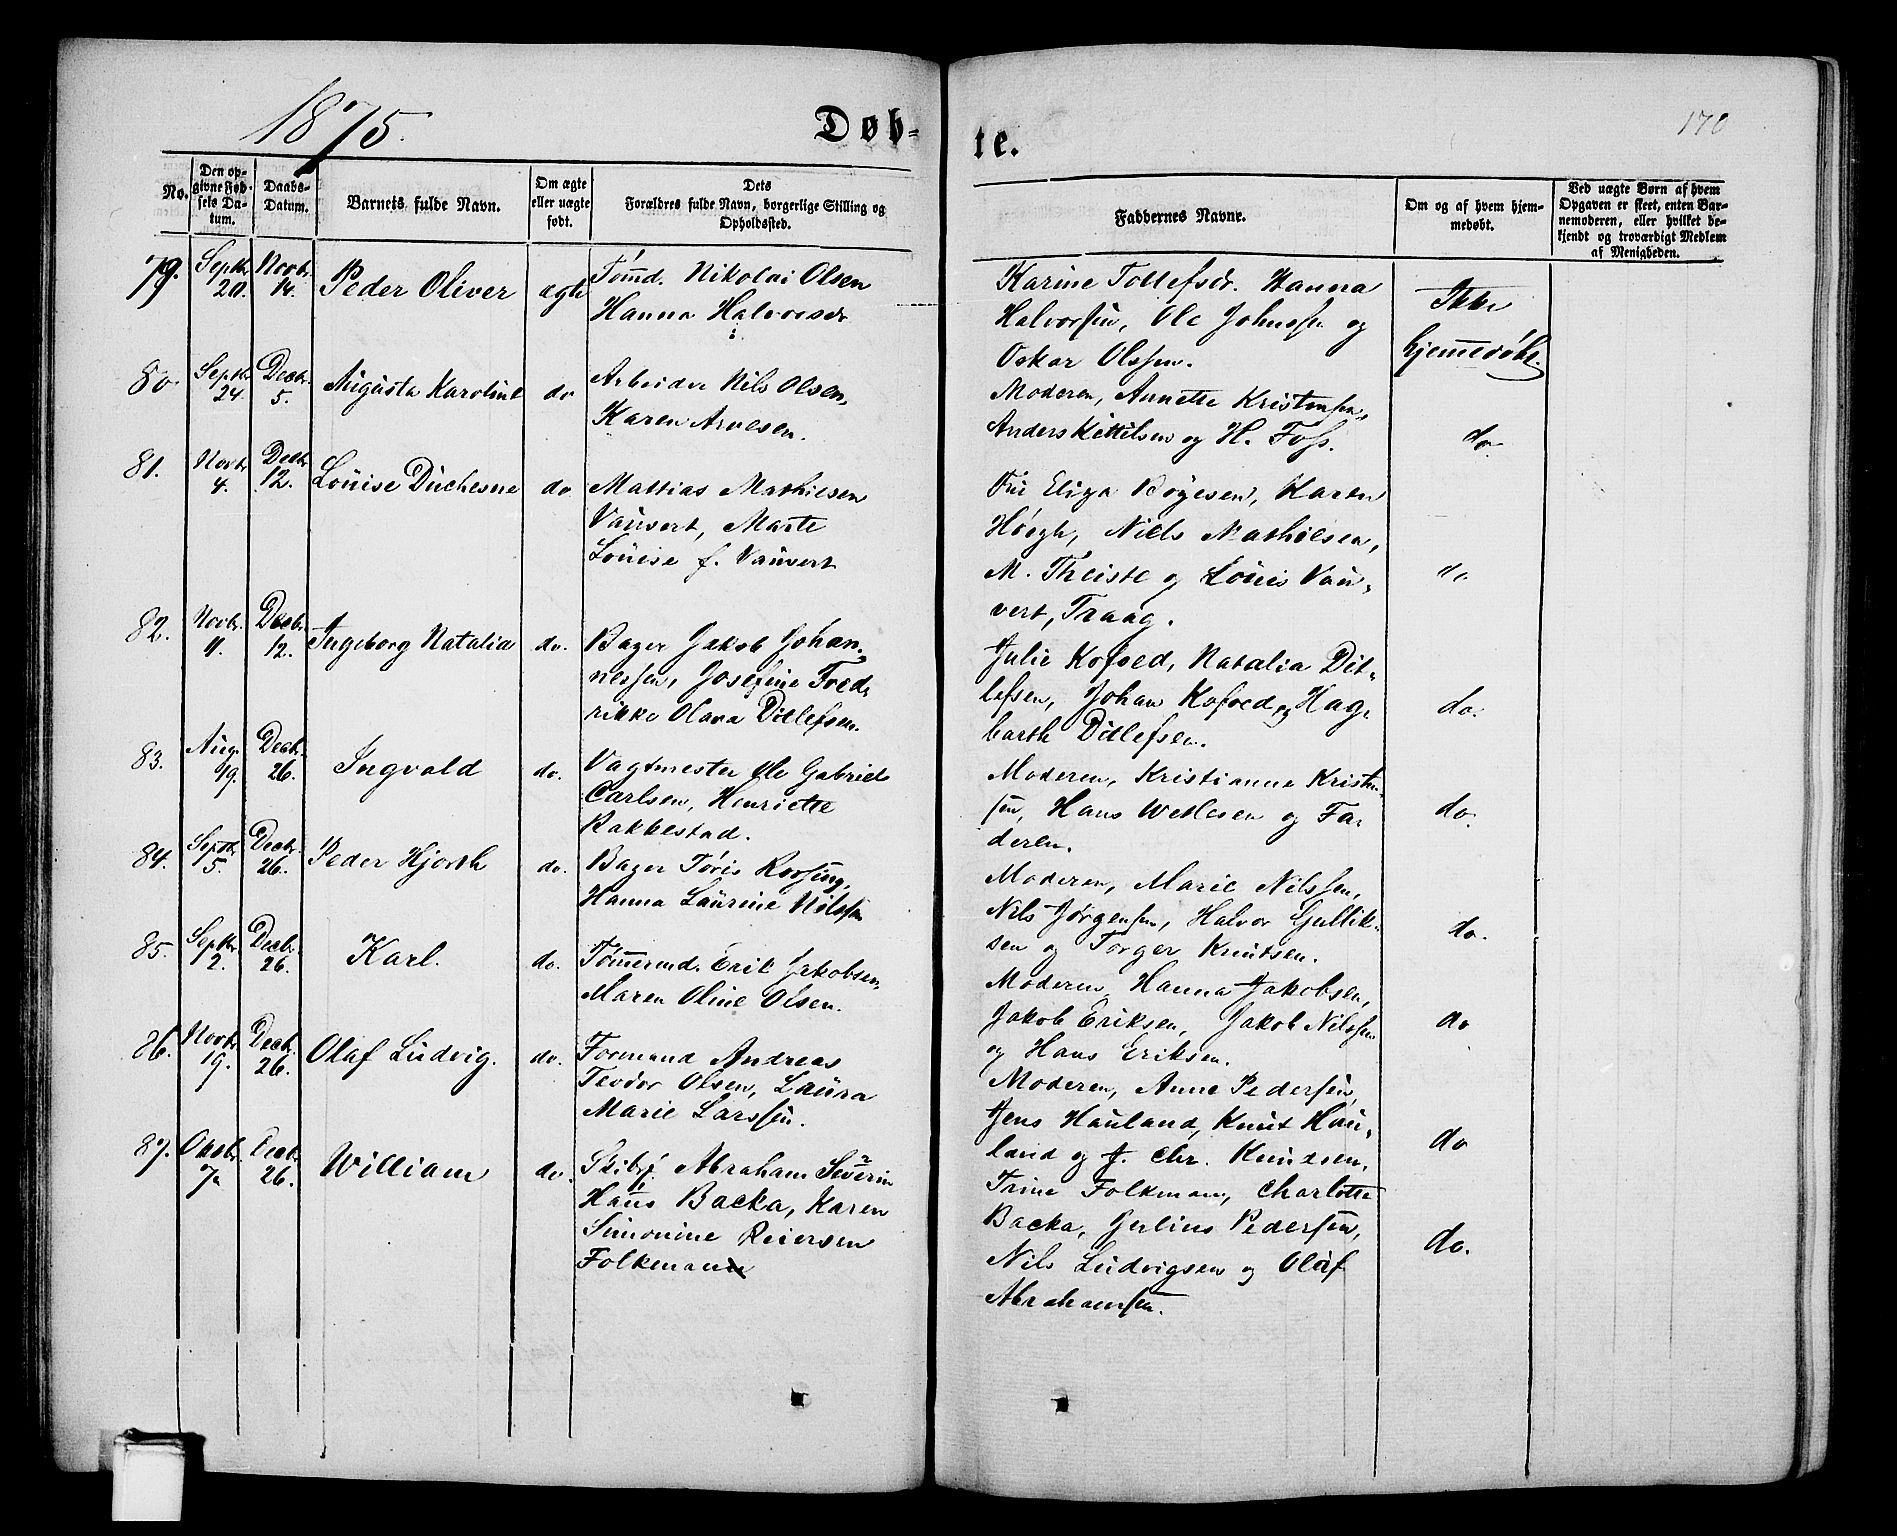 1875.
Døb-
te.
170
No.
Den op-
givne Fød-
sels Da-
tum.
Daabs-
Datum.
Barnets fulde Navn.
Om ægte
eller uægte
født.
Dets
Forældres fulde Navn, borgerlige Stilling og
Opholdssted.
Faddernes Navne.
Om og af hvem hjem-
medøbt.
Ved uægte Børn af hvem
Opgaven er skeet, enten Bar-
nemoderen, eller hvilket be-
kjendt og troværdigt Medlem
af Menigheden.
79.
Septbr.
20.
Novbr.
14.
Peder Oliver
ægte
Tømd. Nikolai Olsen
Hanna Halvorsdr
Karine Tollefsdr. Hanna
Halvorsen, Ole Johnssen og
Oskar Olssen.
Ikke
hjemmedøbt.
80.
Septbr
24.
Decbr.
5.
Augusta Karoline
do
Arbeider Nils Olsen,
Karen Arnesen.
Moderen, Annette Kristensen,
Anders Kittilsen og H. Foss.
do.
81.
Novbr
4.
Decbr
12.
Louise Duchesne
do
Mattias Mathiesen
Vauvert, Marte
Louise f. Vauvert
Fru Eliza Boyesen, Karen
Høegh, Niels Mathiesen,
M. Theiste og Louis Vau-
vert, Traag.
do
82.
Novbr.
11.
Decbr.
12.
Ingeborg Natalia
do.
Bager Jakob Johan-
nessen, Josefine Fred-
rikke Olava Ditlefsen.
Julie Kofoed, Natalia Dit-
lefsen, Johan Kofoed og Hag-
barth Ditlefsen.
do.
83.
Aug.
19.
Decbr.
26.
Ingvald
do.
Vagtmester Ole Gabriel
Carlsen, Henriette
Rakkestad.
Moderen, Kristianne Kristen-
sen, Hans Wetlesen og Fa-
deren.
do.
84.
Septbr.
5.
Decbr.
26.
Peder Hjorth
do.
Bager Tøris Rossing,
Hanna Laurine Nilssen
Moderen, Marie Nilssen,
Nils Jørgensen, Halvor Gullik-
sen og Torger Knutsen.
do.
85.
Septbr
2.
Decbr.
26.
Karl.
do.
Tømmermd. Erik Jakobsen,
Maren Oline Olsen.
Moderen, Hanna Jakobsen,
Jakob Eriksen, Jakob Nilssen
og Hans Eriksen.
do
86.
Novbr
19.
Decbr.
26.
Olaf Ludvig.
do.
Formand Andreas
Teodor Olsen, Laura
Marie Larssen.
Moderen, Anne Pedersen,
Jens Hauland, Knut Hau-
land og J. Chr. Knudsen.
do
87.
Oktbr.
7.
Decbr.
26.
William
do.
Skibsf. Abraham Severin
Hans Backa, Karen
Simonine Reiersen
Folkman
Trine Folkman, Charlotte
Backa, Julius Pedersen,
Nils Ludvigsen og Olaf
Abrahamsen.
do.